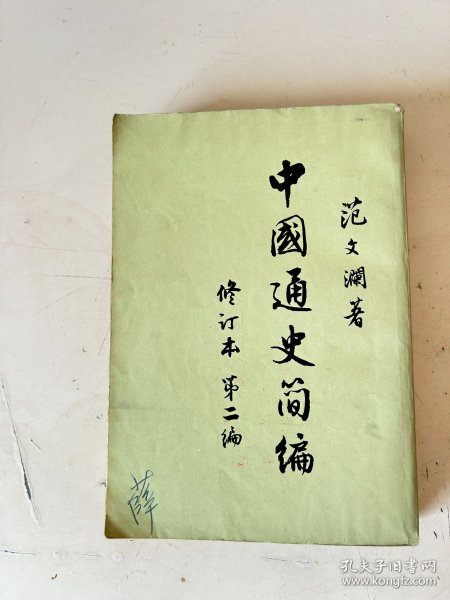 范文澜著
中國通史简编
修订本 第二编
薛
孔夫子旧书网
www.kongfz.com